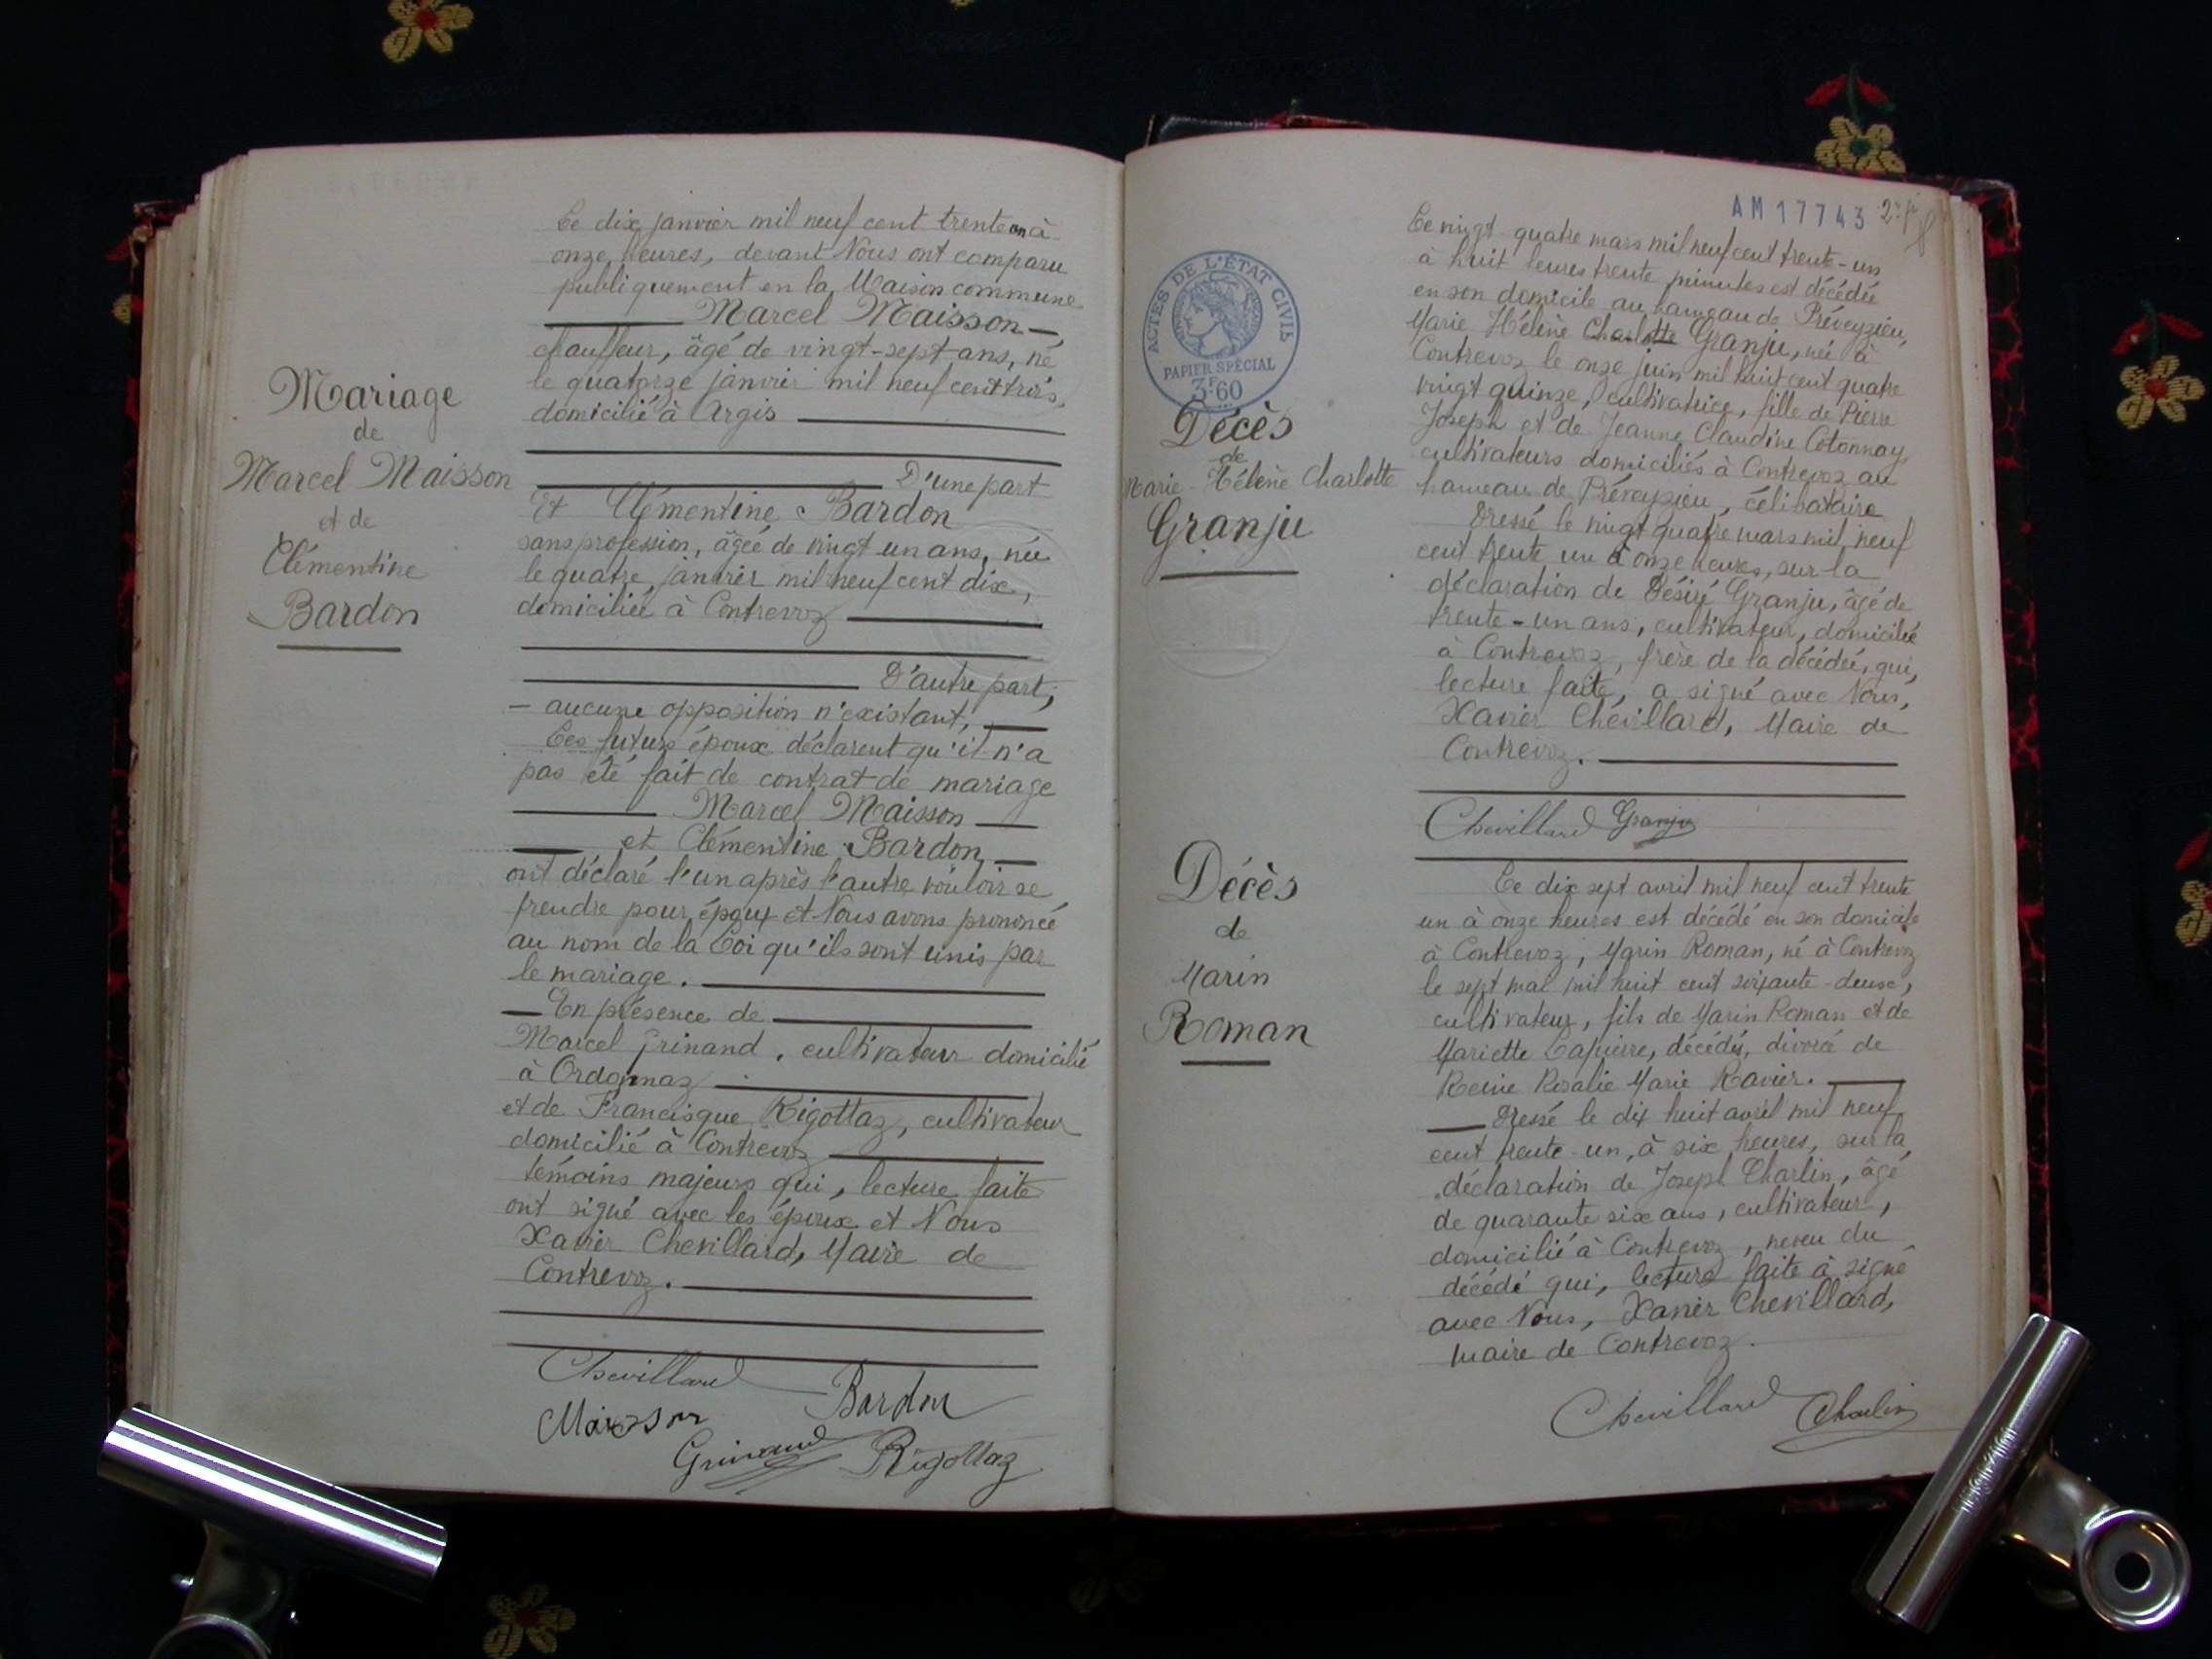 Mariage
de
Marcel Maisson
et de
Clémentine
Bardon
Le dix janvier mil neuf cent trente un à
onze heures, devant Nous ont comparu
publiquement en la Maison commune
Marcel Maisson
chauffeur, âgé de vingt-sept ans, né
le quatorze janvier mil neuf cent trois,
domicilié à Argis
D'une part
Et Clémentine Bardon
sans profession, âgée de vingt un ans, née
le quatre janvier mil neuf cent dix,
domiciliée à Contrevoz
D'autre part;
aucune opposition n'existant,
Les futurs époux déclarent qu'il n'a
pas été fait de contrat de mariage
Marcel Maisson
et Clémentine Bardon
ont déclaré l'un après l'autre vouloir se
prendre pour époux et Nous avons prononcé
au nom de la Loi qu'ils sont unis par
le mariage.
En présence de
Marcel Grinand, cultivateur domicilié
à Ordonnaz
et de Francisque Rigottaz, cultivateur
domicilié à Contrevoz
témoins majeurs qui, lecture faite
ont signé avec les époux et Nous
Xavier Chevillard, Maire de
Contrevoz.
Chevillard Bardon
Maisson
Grinand Rigottaz
AM17743
ACTES DE L'ÉTAT CIVIL
PAPIER SPÉCIAL
3F60
Décès
de
Marie-Hélène Charlotte
Granju
Le vingt-quatre mars mil neuf cent trente-un
à huit heures trente minutes est décédée
en son domicile au hameau de Préveyzieu,
Marie Hélène Charlotte Granju, née à
Contrevoz le onze juin mil huit cent quatre
vingt quinze, cultivatrice, fille de Pierre
Joseph et de Jeanne Claudine Cotonnay,
cultivateurs domiciliés à Contrevoz au
hameau de Préveyzieu, célibataire
Dressé le vingt quatre mars mil neuf
cent trente un à onze heures, sur la
déclaration de Désiré Granju, âgé de
trente-un ans, cultivateur, domicilié
à Contrevoz, frère de la décédée, qui,
lecture faite, a signé avec Nous,
Xavier Chevillard, Maire de
Contrevoz.
Chevillard Granju
Décès
de
Marin
Roman
Le dix sept avril mil neuf cent trente
un à onze heures est décédé en son domicile
à Contrevoz, Marin Roman, né à Contrevoz
le sept mai mil huit cent soixante-deux,
cultivateur, fils de Marin Roman et de
Mariette Lapierre, décédés, divorcé de
Reine Rosalie Marie Ravier.
Dressé le dix huit avril mil neuf
cent trente-un, à six heures, sur la
déclaration de Joseph Charlin, âgé
de quarante six ans, cultivateur,
domicilié à Contrevoz, neveu du
décédé qui, lecture faite à signé
avec Nous, Xavier Chevillard,
maire de Contrevoz.
Chevillard Charlin